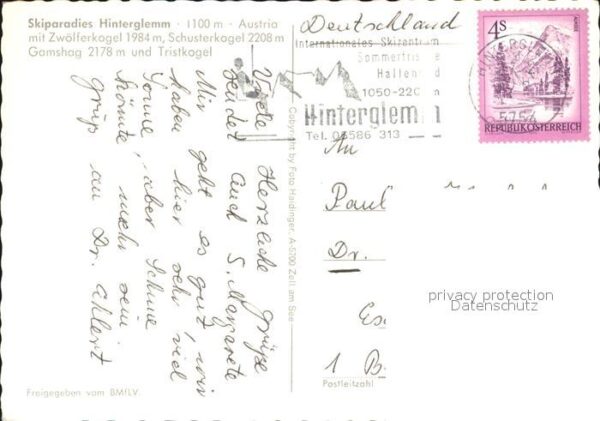 Skiparadies Hinterglemm · 1100 m · Austria
mit Zwölferkogel 1984 m, Schusterkogel 2208 m
Gamshag 2178 m und Tristkogel
Deutschland
Internationales Skizentrum
Sommerfrische
Hallenbad
1050-220 m
Hinterglemm
Tel. 06586 313
HINTERGLEMM
5754
4 S
REPUBLIK ÖSTERREICH
Viele Herzliche Grüße
sendet Euch S. Margarete
Mir geht es gut, wir
haben hier sehr viel
Sonne, aber Schnee
könnte mehr sein
grüß an Dr.
Copyright by Foto Haidinger, A-5700 Zell am See
An
Paul
Dr.
Es
1 B
Postleitzahl
privacy protection
Datenschutz
Freigegeben vom BMfLV.